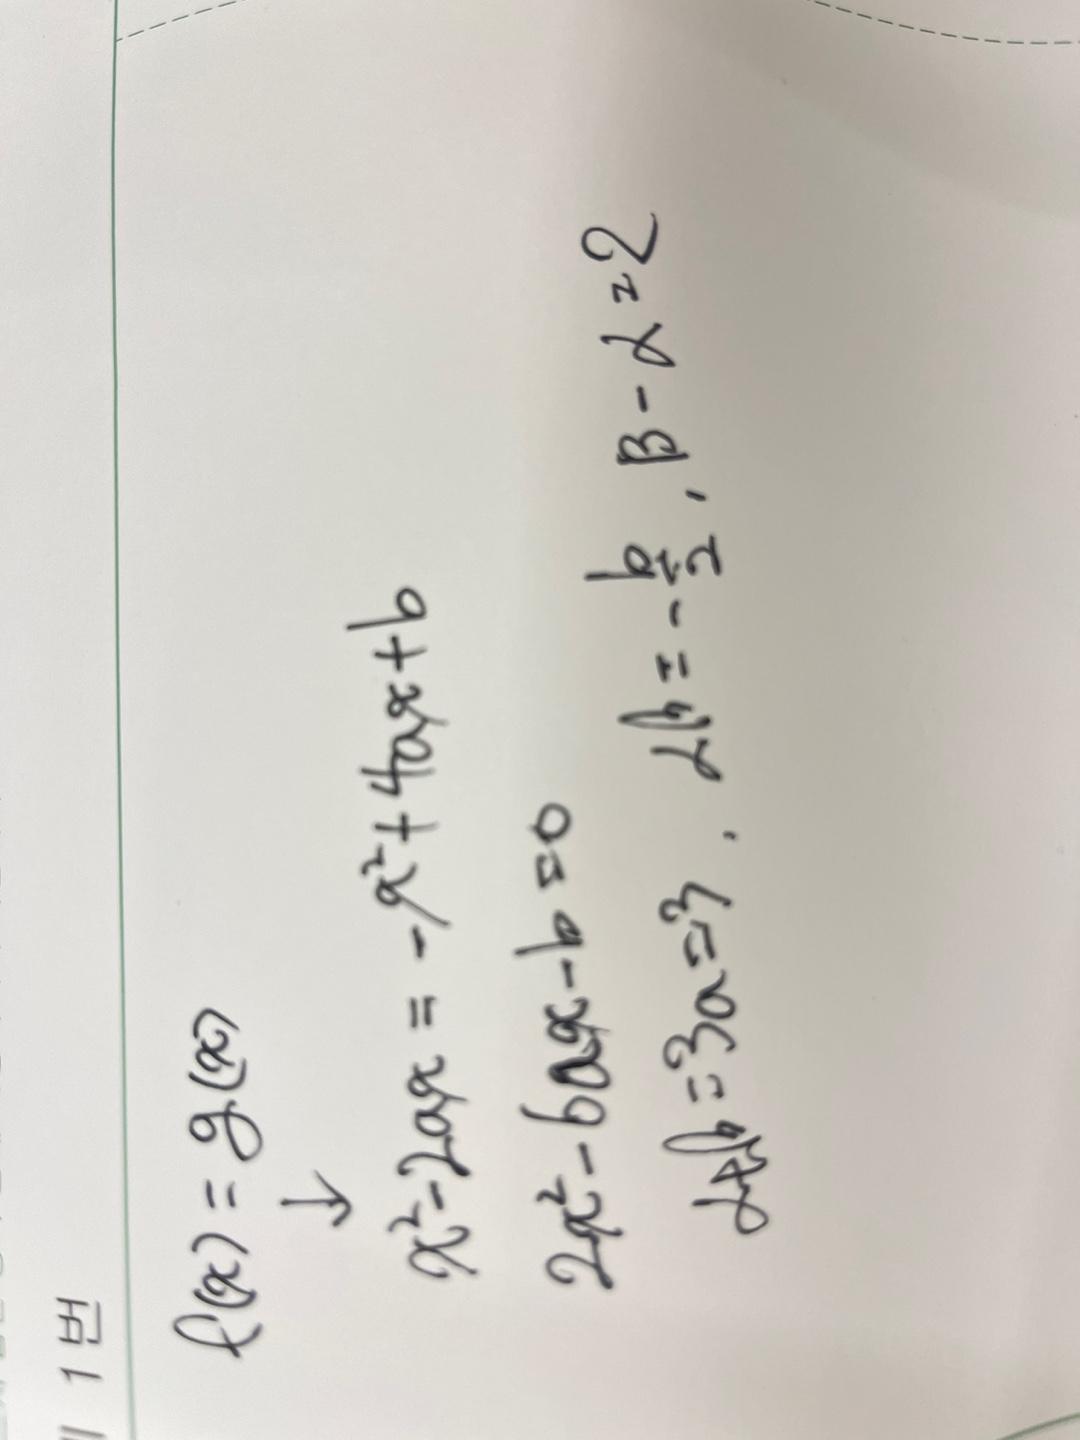 1번
f(x) = g(x)
↓
x² - 2ax = -x² + 4ax + b
2x² - 6ax - b = 0
α+β = 3a = 3, αβ = -b/2, β - α = 2